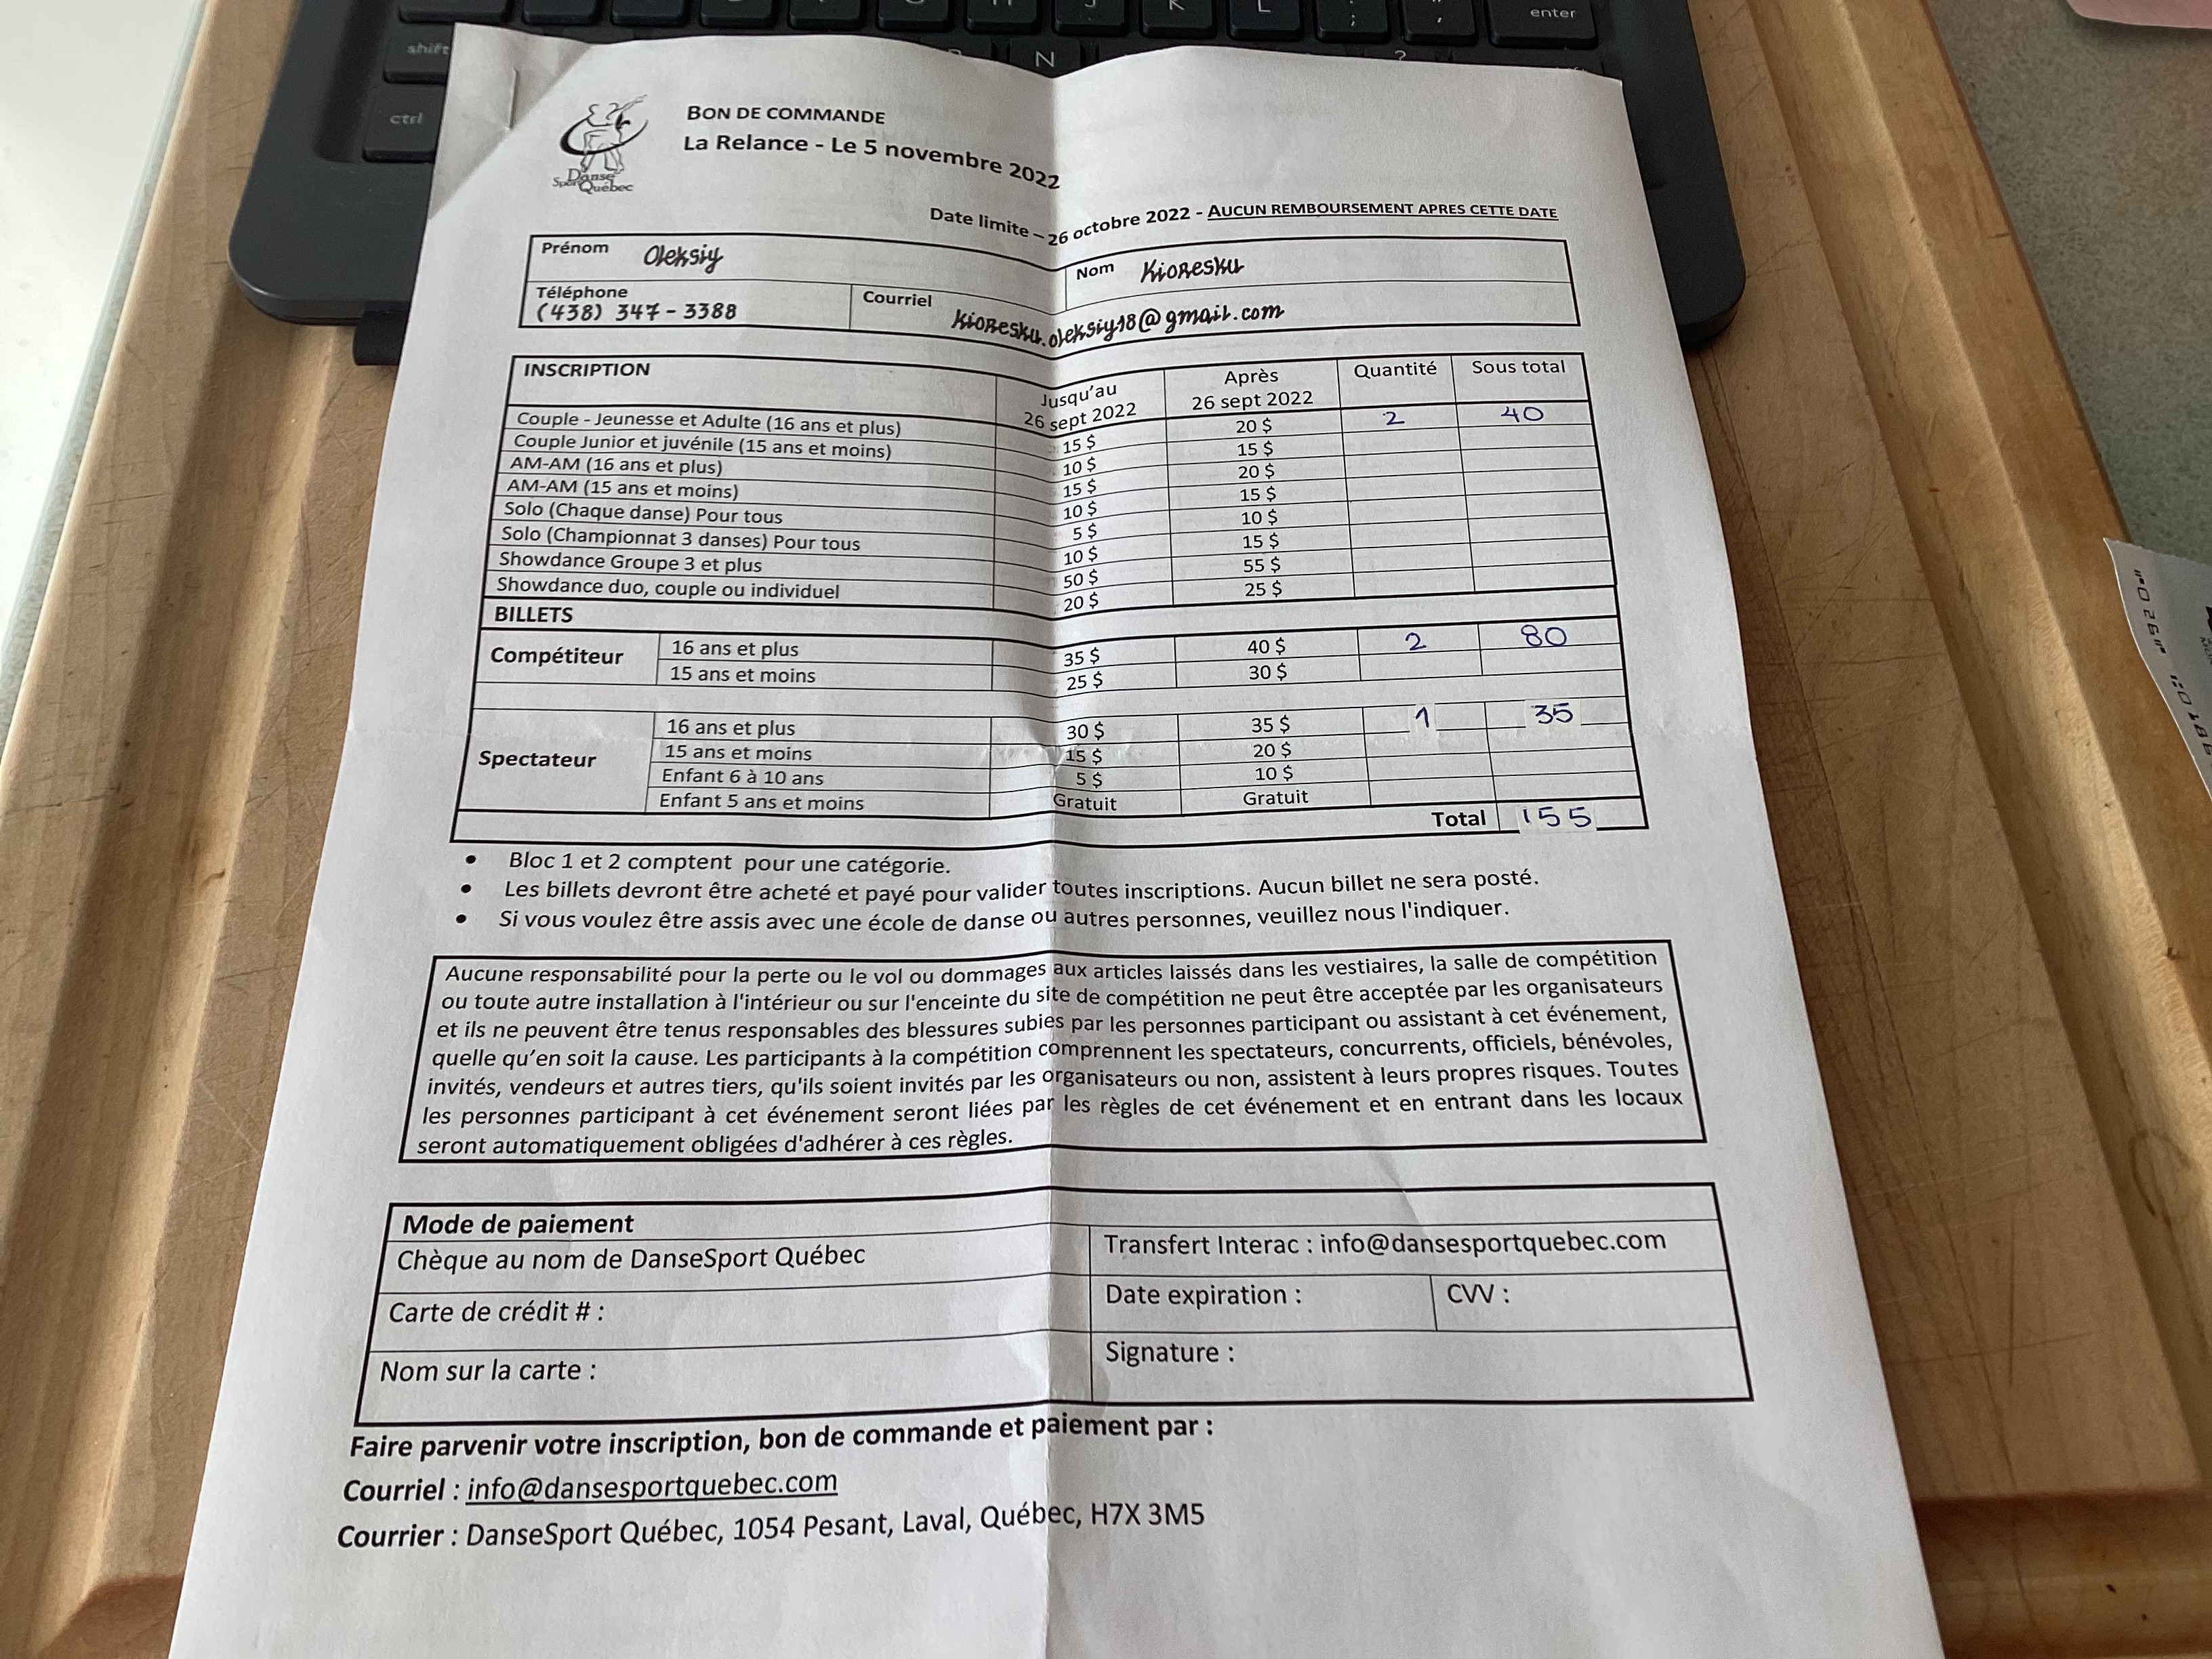 shift
ctrl
enter
N
K
L
;
,
?
BON DE COMMANDE
La Relance - Le 5 novembre 2022
Danse
Sport Québec
Date limite – 26 octobre 2022 - AUCUN REMBOURSEMENT APRES CETTE DATE
Prénom Oleksiy Nom Kioresku
Téléphone Courriel
(438) 347-3388 kioresku.oleksiy18@gmail.com
INSCRIPTION Jusqu'au 26 sept 2022 Après 26 sept 2022 Quantité Sous total
Couple - Jeunesse et Adulte (16 ans et plus) 15 $ 20 $ 2 40
Couple Junior et juvénile (15 ans et moins) 10 $ 15 $
AM-AM (16 ans et plus) 15 $ 20 $
AM-AM (15 ans et moins) 10 $ 15 $
Solo (Chaque danse) Pour tous 5 $ 10 $
Solo (Championnat 3 danses) Pour tous 10 $ 15 $
Showdance Groupe 3 et plus 50 $ 55 $
Showdance duo, couple ou individuel 20 $ 25 $
BILLETS
Compétiteur 16 ans et plus 35 $ 40 $ 2 80
15 ans et moins 25 $ 30 $
Spectateur 16 ans et plus 30 $ 35 $ 1 35
15 ans et moins 15 $ 20 $
Enfant 6 à 10 ans 5 $ 10 $
Enfant 5 ans et moins Gratuit Gratuit
Total 155
• Bloc 1 et 2 comptent pour une catégorie.
• Les billets devront être acheté et payé pour valider toutes inscriptions. Aucun billet ne sera posté.
• Si vous voulez être assis avec une école de danse ou autres personnes, veuillez nous l'indiquer.
Aucune responsabilité pour la perte ou le vol ou dommages aux articles laissés dans les vestiaires, la salle de compétition
ou toute autre installation à l'intérieur ou sur l'enceinte du site de compétition ne peut être acceptée par les organisateurs
et ils ne peuvent être tenus responsables des blessures subies par les personnes participant ou assistant à cet événement,
quelle qu'en soit la cause. Les participants à la compétition comprennent les spectateurs, concurrents, officiels, bénévoles,
invités, vendeurs et autres tiers, qu'ils soient invités par les organisateurs ou non, assistent à leurs propres risques. Toutes
les personnes participant à cet événement seront liées par les règles de cet événement et en entrant dans les locaux
seront automatiquement obligées d'adhérer à ces règles.
Mode de paiement
Chèque au nom de DanseSport Québec Transfert Interac : info@dansesportquebec.com
Carte de crédit # : Date expiration : CVV :
Nom sur la carte : Signature :
Faire parvenir votre inscription, bon de commande et paiement par :
Courriel : info@dansesportquebec.com
Courrier : DanseSport Québec, 1054 Pesant, Laval, Québec, H7X 3M5